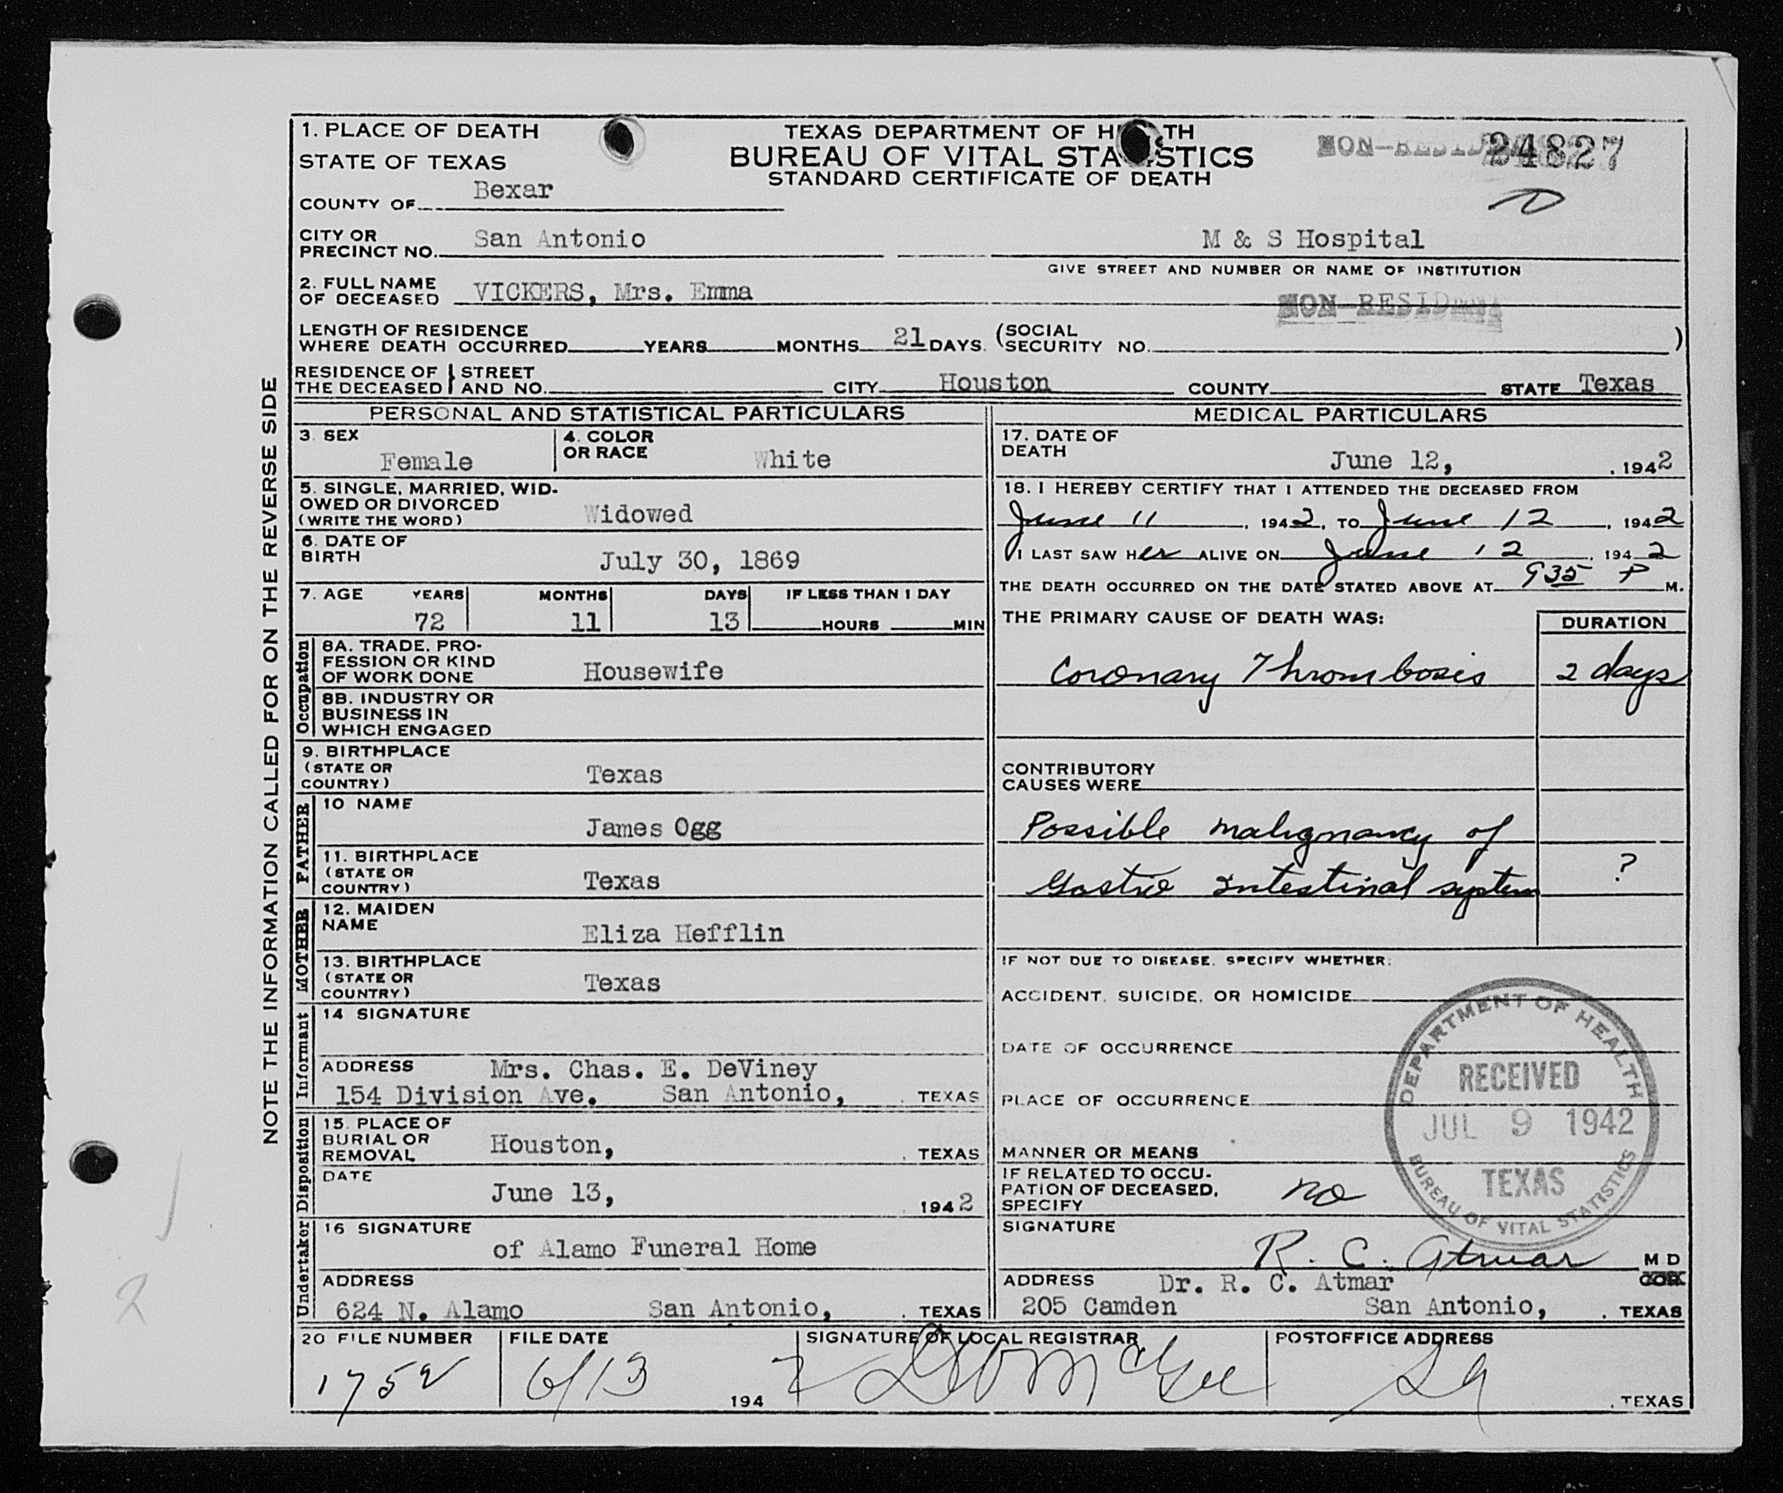 1. PLACE OF DEATH
STATE OF TEXAS
COUNTY OF Bexar
TEXAS DEPARTMENT OF H TH
BUREAU OF VITAL STA STICS
STANDARD CERTIFICATE OF DEATH
NON-RESID 24827
CITY OR
PRECINCT NO. San Antonio M & S Hospital
GIVE STREET AND NUMBER OR NAME OF INSTITUTION
2. FULL NAME
OF DECEASED VICKERS, Mrs. Emma
NON-RESIDENT
LENGTH OF RESIDENCE
WHERE DEATH OCCURRED YEARS MONTHS 21 DAYS. (SOCIAL
SECURITY NO. )
RESIDENCE OF
THE DECEASED } STREET
AND NO. CITY Houston COUNTY STATE Texas
NOTE THE INFORMATION CALLED FOR ON THE REVERSE SIDE
PERSONAL AND STATISTICAL PARTICULARS
3. SEX
Female
4. COLOR
OR RACE White
5. SINGLE, MARRIED, WID-
OWED OR DIVORCED
(WRITE THE WORD) Widowed
6. DATE OF
BIRTH July 30, 1869
7. AGE YEARS MONTHS DAYS IF LESS THAN 1 DAY
72 11 13 HOURS MIN
Occupation
8A. TRADE, PRO-
FESSION OR KIND
OF WORK DONE Housewife
8B. INDUSTRY OR
BUSINESS IN
WHICH ENGAGED
9. BIRTHPLACE
(STATE OR
COUNTRY) Texas
FATHER
10 NAME
James Ogg
11. BIRTHPLACE
(STATE OR
COUNTRY) Texas
MOTHER
12. MAIDEN
NAME Eliza Hefflin
13. BIRTHPLACE
(STATE OR
COUNTRY) Texas
Informant
14 SIGNATURE
ADDRESS Mrs. Chas. E. DeViney
154 Division Ave. San Antonio, TEXAS
Disposition
15. PLACE OF
BURIAL OR
REMOVAL Houston, TEXAS
DATE
June 13, 1942
Undertaker
16 SIGNATURE
of Alamo Funeral Home
ADDRESS
624 N. Alamo San Antonio, TEXAS
MEDICAL PARTICULARS
17. DATE OF
DEATH June 12, , 1942
18. I HEREBY CERTIFY THAT I ATTENDED THE DECEASED FROM
June 11 , 1942, TO June 12 , 1942
I LAST SAW Her ALIVE ON June 12 , 1942
THE DEATH OCCURRED ON THE DATE STATED ABOVE AT 935 P M.
THE PRIMARY CAUSE OF DEATH WAS: DURATION
Coronary Thrombosis 2 days
CONTRIBUTORY
CAUSES WERE
Possible malignancy of
Gastro Intestinal system ?
IF NOT DUE TO DISEASE, SPECIFY WHETHER:
ACCIDENT, SUICIDE, OR HOMICIDE
DATE OF OCCURRENCE
PLACE OF OCCURRENCE
MANNER OR MEANS
IF RELATED TO OCCU-
PATION OF DECEASED,
SPECIFY no
DEPARTMENT OF HEALTH
RECEIVED
JUL 9 1942
TEXAS
BUREAU OF VITAL STATISTICS
SIGNATURE
R. C. Atmar M D
ADDRESS Dr. R. C. Atmar COR.
205 Camden San Antonio, TEXAS
20 FILE NUMBER FILE DATE SIGNATURE OF LOCAL REGISTRAR POSTOFFICE ADDRESS
1752 6/13 1942 McGee SA , TEXAS
2